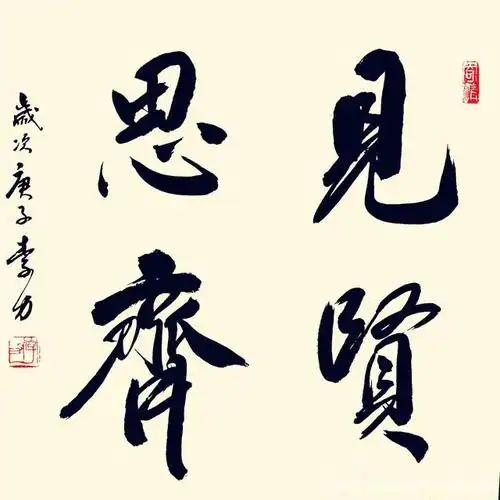 見賢
思齊
歲次庚子李力